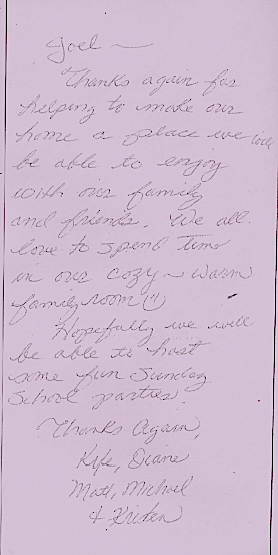 Joel ~
Thanks again for
helping to make our
home a place we will
be able to enjoy
with our family
and friends. We all
love to spend time
in our cozy ~ warm
family room (")
Hopefully we will
be able to host
some fun Sunday
School parties.
Thanks Again,
Kyle, Diane
Matt, Michael
& Kristen